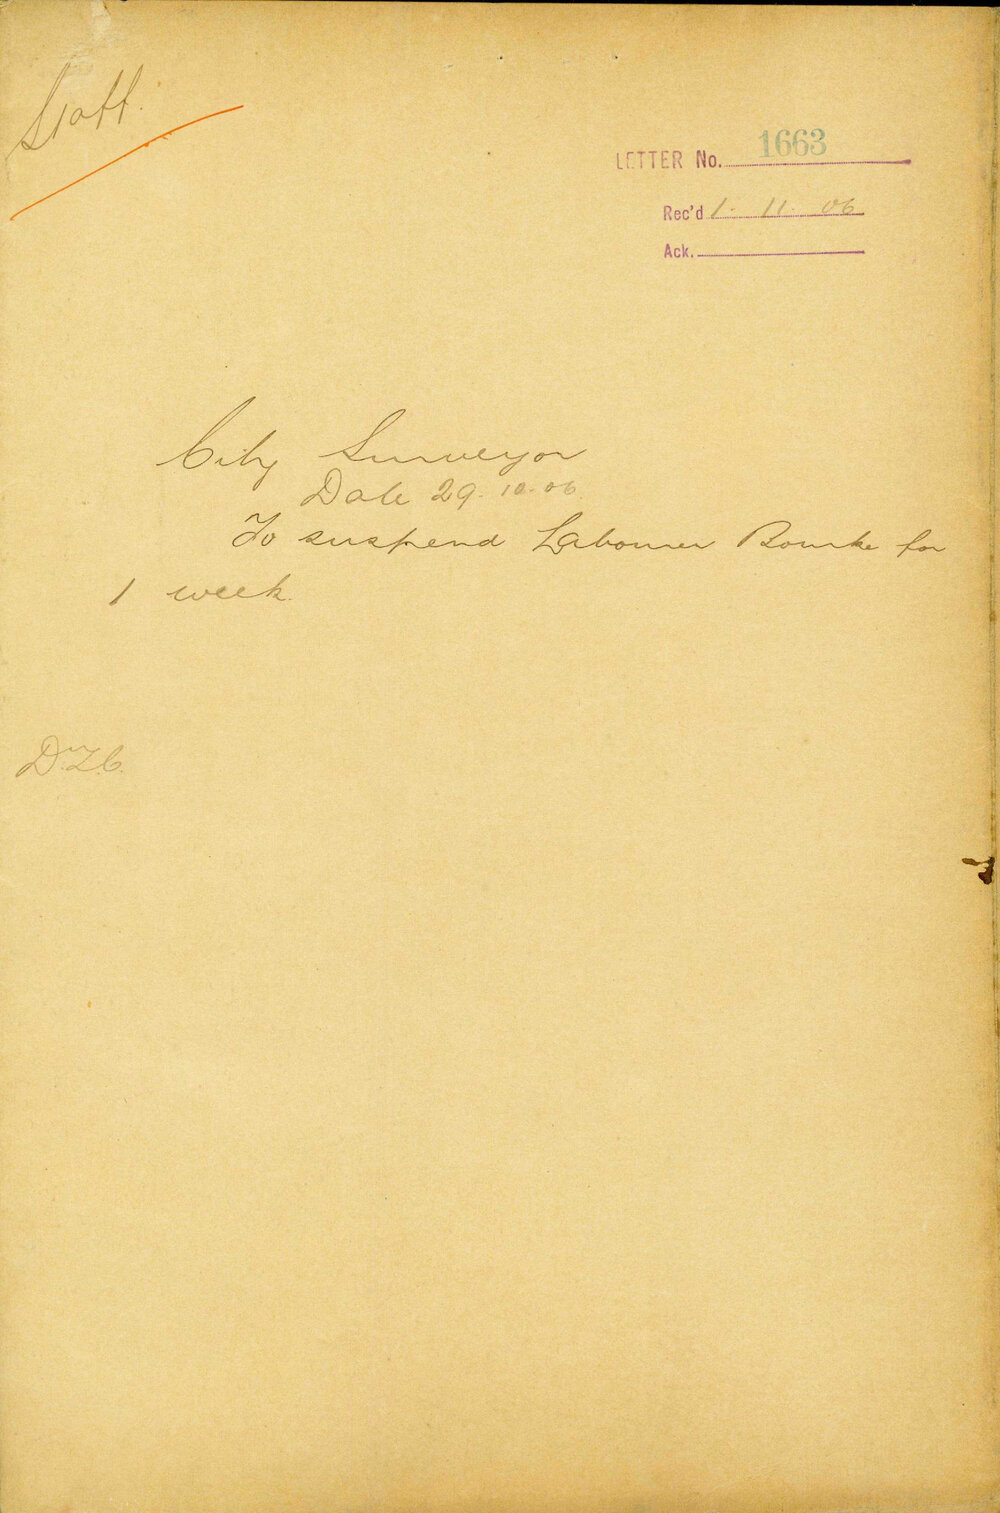 Staff.
LETTER No. 1663
Rec'd 1. 11. 06
Ack.
City Surveyor
Date 29.10.06.
To suspend Labourer Bourke for
1 week.